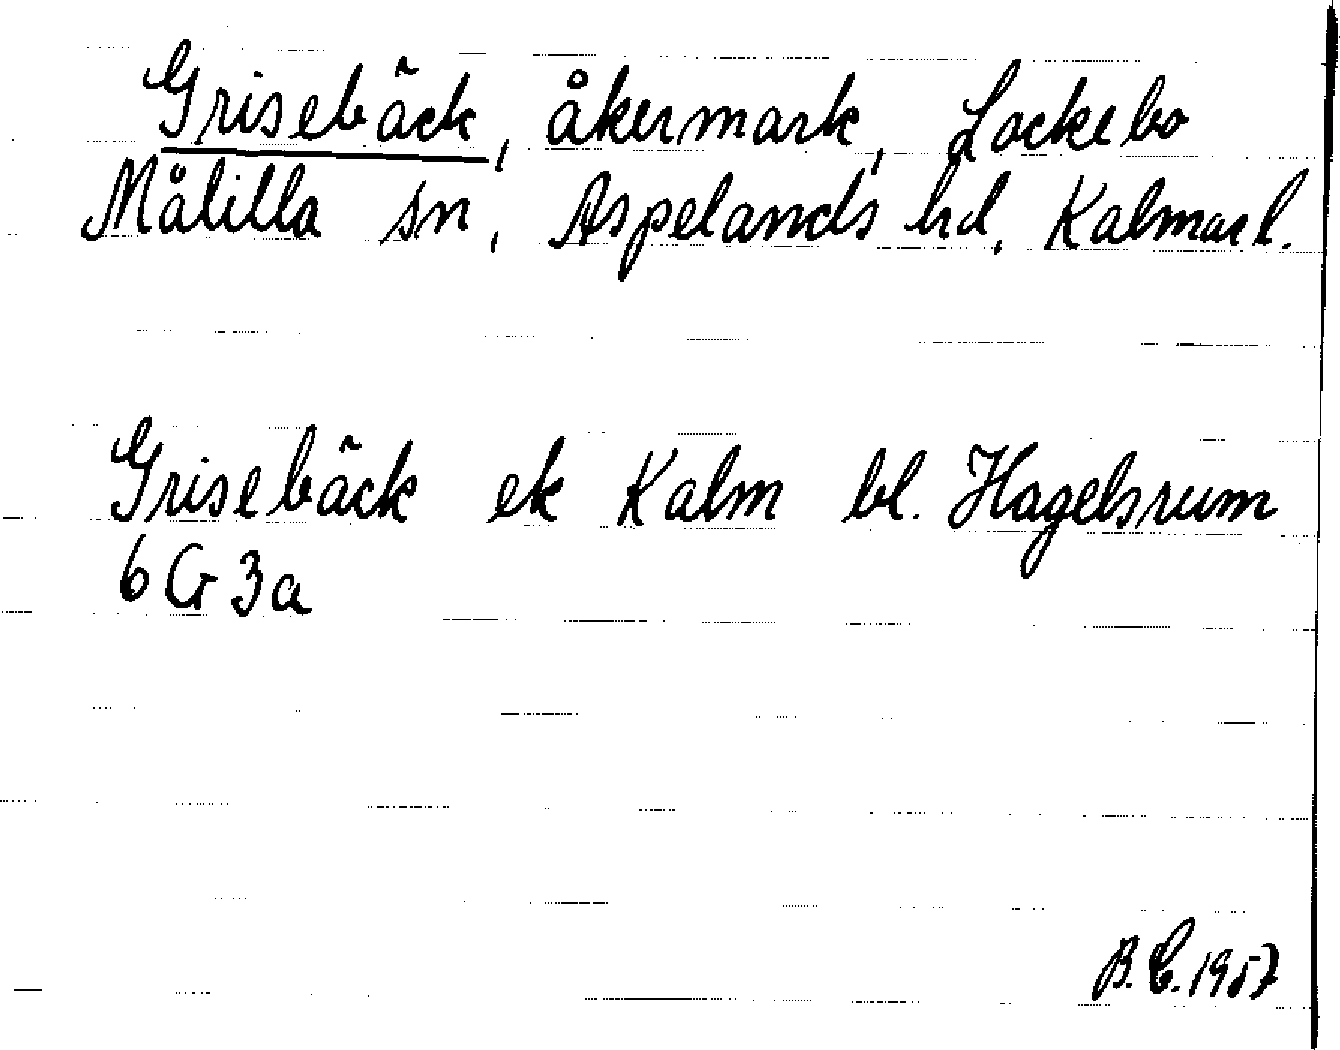 Grisebäck, åkermark, Lockebo
Målilla sn, Aspelands hd, Kalmar l.
Grisebäck ek Kalm bl. Hagelsrum
6 G 3a
B.E. 1957